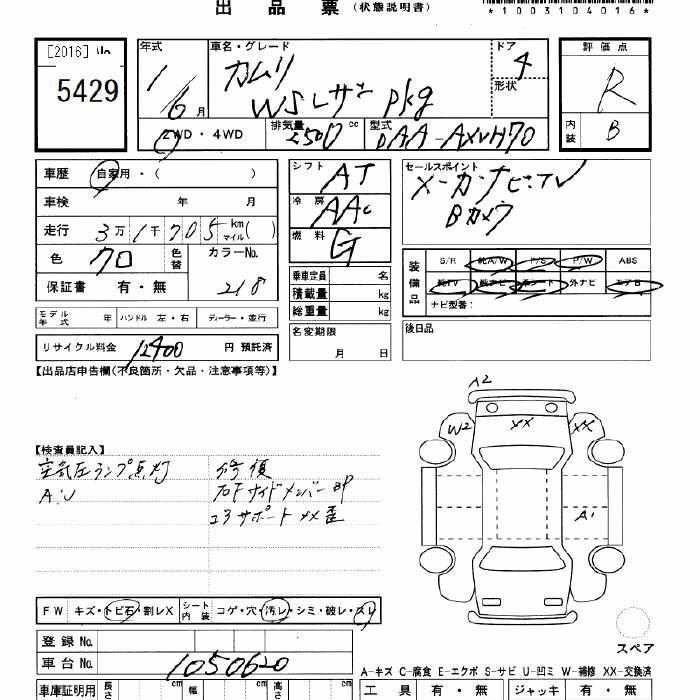 出品票(状態説明書)
*1003104016*
[2016]
5429
年式
1/6月
車名・グレード
カムリ
WSレザーpkg
ドア
4
形状
評価点
R
内装
B
2WD・4WD
排気量 2500 cc
型式 DAA-AXVH70
車歴 自家用・( )
車検 年 月
走行 3万1千705 km マイル( )
色 クロ 色替 カラーNo. 218
保証書 有・無
モデル年式 年 ハンドル 左・右 ディーラー・並行
リサイクル料金 12400 円 預託済
シフト AT
冷房 AAC
燃料 G
乗車定員 名
積載量 kg
総重量 kg
名変期限
月 日
セールスポイント
メーカーナビ・TV
Bカメラ
装備品
S/R 純A/W P/S P/W ABS
純TV 純ナビ 革シート 外ナビ エアB
ナビ型番:
後日品
【出品店申告欄(不良箇所・欠品・注意事項等)】
【検査員記入】
空気圧ランプ点灯
A:U
右F サイドメンバー
コアサポート
A2
W2
XX
XX
A1
FW キズ・トビ石・割レX シート内装 コゲ・穴・汚レ・シミ・破レ・スレ
登録No.
車台No. 1050620
スペア
A-キズ C-腐食 E-エクボ S-サビ U-凹ミ W-補修 XX-交換済
車庫証明用 長さ cm 幅 cm 高さ cm
工具 有・無 ジャッキ 有・無